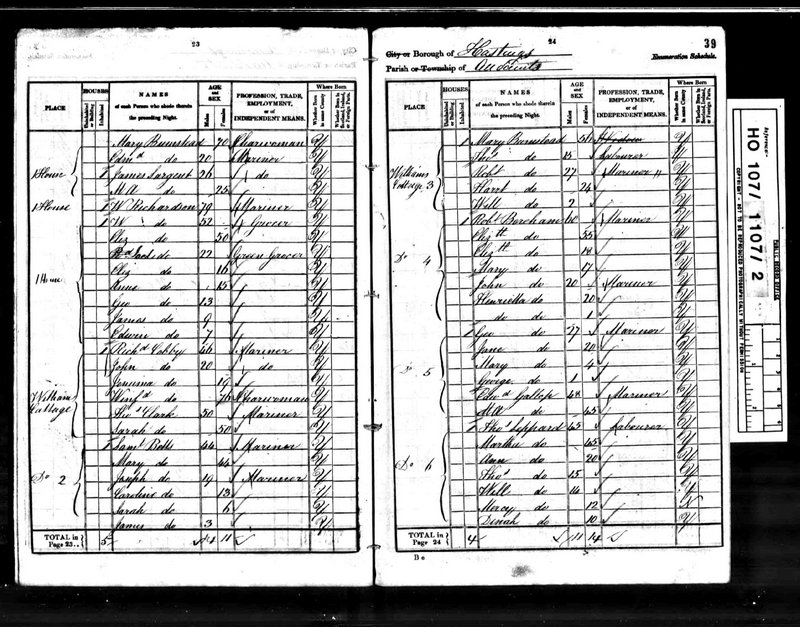 23
PLACE
HOUSES
Uninhabited or Building
Inhabited
NAMES of each Person who abode therein the preceding Night.
AGE and SEX
Males
Females
PROFESSION, TRADE, EMPLOYMENT, or of INDEPENDENT MEANS.
Where Born
Whether Born in same County
Whether Born in Scotland, Ireland, or Foreign Parts.
Mary Bumstead 70 Charwoman Y
Edmd do 20 Mariner Y
1 House 1 James Sargent 26 do Y
M A do 25 Y
1 House 1 W Richardson 79 Mariner Y
1 W do 52 Grocer Y
Eliz do 50 Y
do 22 Green Grocer Y
Eliz do 16 Y
1 House Anne do 15 Y
Geo do 13 Y
James do 9 Y
Edwin do 7 Y
1 Richd Cobby 46 Mariner Y
John do 20 do Y
Jemima do 19 Y
Williams do 76 Charwoman Y
Cottage Thos Clark 50 Mariner Y
Sarah do 50 Y
1 Saml Botts 44 Mariner Y
Mary do 44 Y
Do 2 Joseph do 19 Mariner Y
Caroline do 13 Y
Sarah do 6 Y
James do 3 Y
TOTAL in Page 23.. 5 14 11
24
39
City or Borough of Hastings
Parish or Township of All Saints
Enumeration Schedule.
PLACE
HOUSES
Uninhabited or Building
Inhabited
NAMES of each Person who abode therein the preceding Night.
AGE and SEX
Males
Females
PROFESSION, TRADE, EMPLOYMENT, or of INDEPENDENT MEANS.
Where Born
Whether Born in same County
Whether Born in Scotland, Ireland, or Foreign Parts.
1 Mary Bumstead 50 Widow Y
Thos do 15 Labourer Y
Williams Robt do 27 Mariner Y
Cottage 3 Harrt do 24 Y
Will do 2 Y
1 Robt Burcham 60 Mariner Y
Elizth do 55 Y
Elizth do 18 Y
Do 4 Mary do 17 Y
John do 20 Mariner Y
Henrietta do 20 Y
do do 1 Y
1 Geo do 27 Mariner Y
Jane do 20 Y
Mary do 4 Y
Do 5 George do 1 Y
Edwd Gallop 48 Mariner Y
do 45 Y
1 Thos Leppard 45 Labourer Y
Martha do 45 Y
Do 6 Ann do 20 Y
Thos do 15 Y
Will do 14 Y
Mercy do 12 N
Dinah do 10 Y
TOTAL in Page 24 4 11 14
B e
Reference:-
HO 107/1107/2
PUBLIC RECORD OFFICE